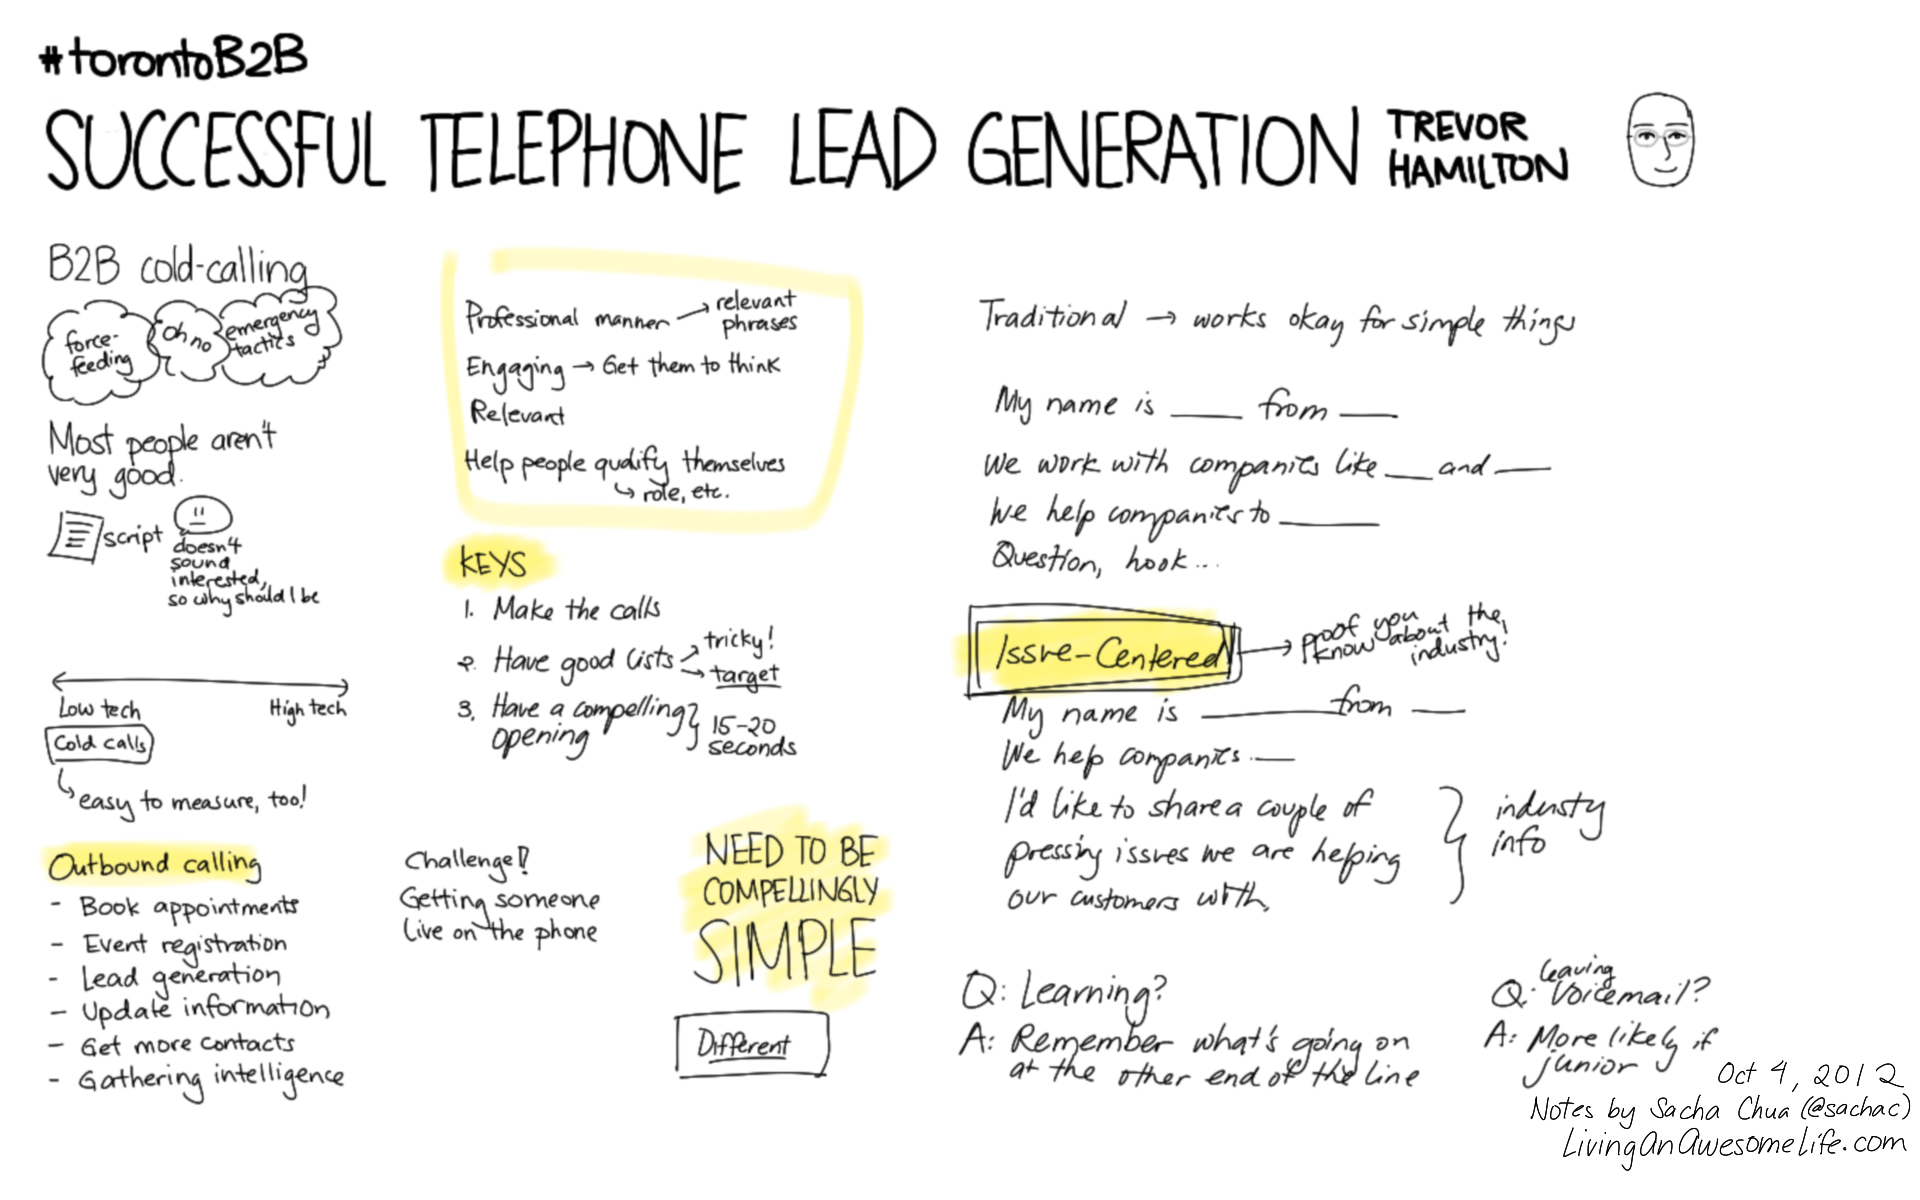 #torontoB2B
SUCCESSFUL TELEPHONE LEAD GENERATION
TREVOR
HAMILTON
B2B cold-calling
force-
feeding
Oh no
emergency
tactics
Most people aren't
very good.
script
doesn't
sound
interested,
so why should I be
Low tech
High tech
Cold calls
easy to measure, too!
Outbound calling
- Book appointments
- Event registration
- Lead generation
- Update information
- Get more contacts
- Gathering intelligence
Professional manner → relevant
phrases
Engaging → Get them to think
Relevant
Help people qualify themselves
↳ role, etc.
KEYS
1. Make the calls
2. Have good lists → tricky!
→ target
3. Have a compelling
opening
15-20
seconds
Challenge!
Getting someone
live on the phone
NEED TO BE
COMPELLINGLY
SIMPLE
Different
Traditional → works okay for simple things
My name is ____ from ____
We work with companies like ___ and ____
We help companies to ______
Question, hook...
Issue-Centered
→ Proof you
know about the
industry!
My name is ________ from ____
We help companies ___
I'd like to share a couple of
pressing issues we are helping
our customers with.
industy
info
Q: Learning?
A: Remember what's going on
at the other end of the line
Q: leaving
Voicemail?
A: More likely if
junior
Oct 4, 2012
Notes by Sacha Chua (@sachac)
LivingAnAwesomeLife.com